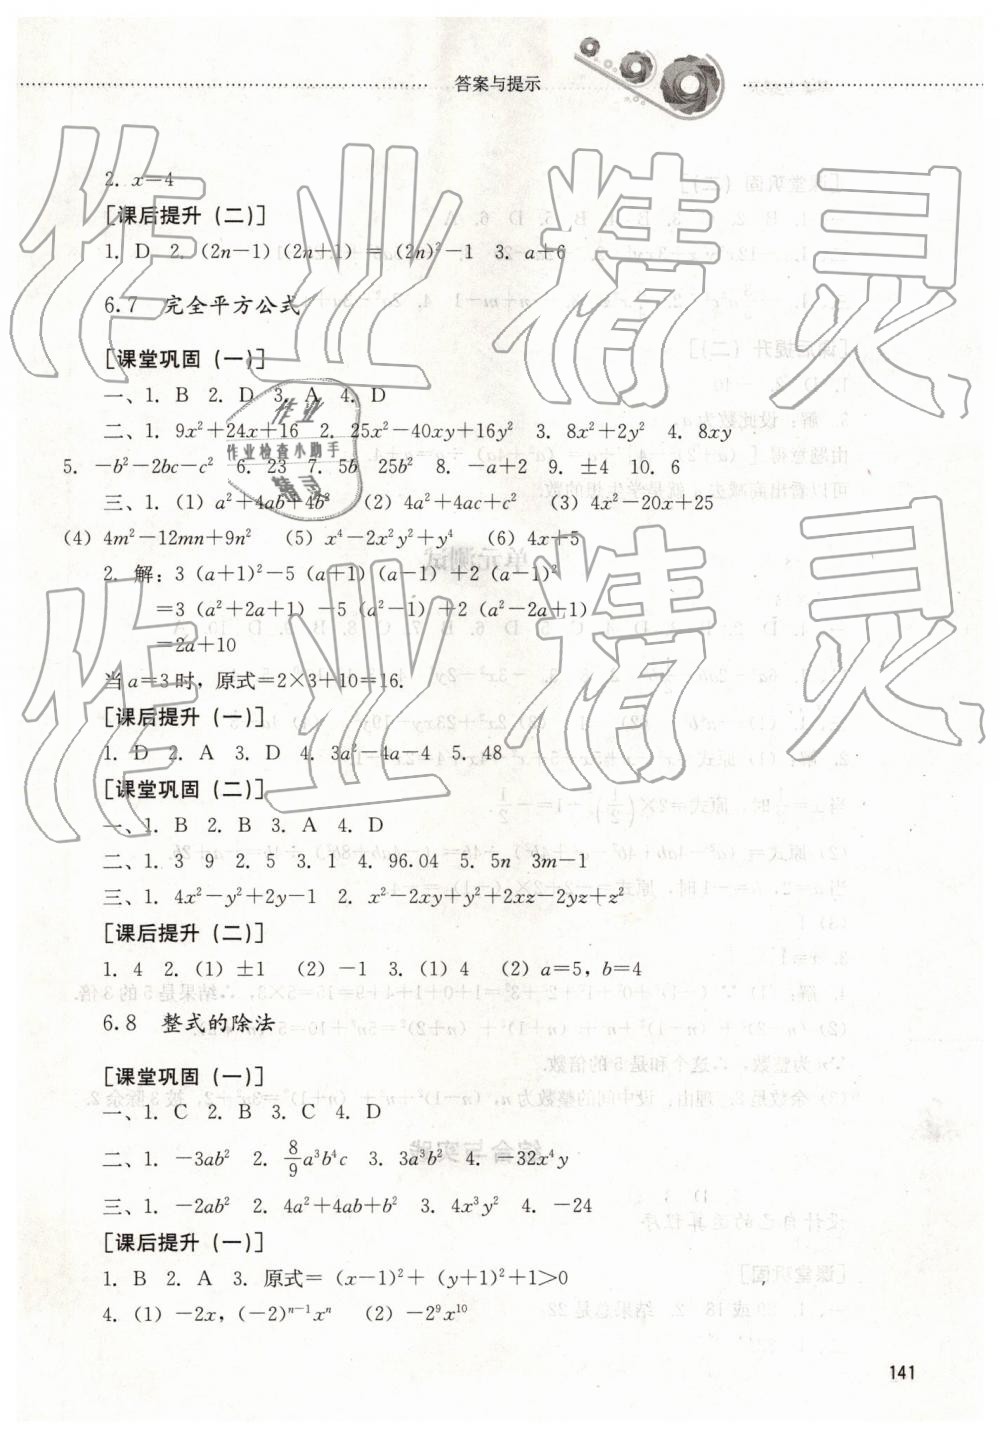 答案与提示
2. x=4
[课后提升（二）]
1. D 2. (2n－1) (2n＋1) ＝ (2n)²－1 3. a＋6
6.7 完全平方公式
[课堂巩固（一）]
一、1. B 2. D 3. A 4. D
二、1. 9x²＋24x＋16 2. 25x²－40xy＋16y² 3. 8x²＋2y² 4. 8xy
5. －b²－2bc－c² 6. 23 7. 5b 25b² 8. －a＋2 9. ±4 10. 6
三、1. (1) a²＋4ab＋4b² (2) 4a²＋4ac＋c² (3) 4x²－20x＋25
(4) 4m²－12mn＋9n² (5) x⁴－2x²y²＋y⁴ (6) 4x＋5
2. 解：3 (a＋1)²－5 (a＋1) (a－1) ＋2 (a－1)²
＝3 (a²＋2a＋1) －5 (a²－1) ＋2 (a²－2a＋1)
＝2a＋10
当a＝3时，原式＝2×3＋10＝16.
[课后提升（一）]
1. D 2. A 3. D 4. 3a²－4a－4 5. 48
[课堂巩固（二）]
一、1. B 2. B 3. A 4. D
二、1. 3 9 2. 5 3. 1 4. 96.04 5. 5n 3m－1
三、1. 4x²－y²＋2y－1 2. x²－2xy＋y²＋2xz－2yz＋z²
[课后提升（二）]
1. 4 2. (1) ±1 (2) －1 3. (1) 4 (2) a＝5，b＝4
6.8 整式的除法
[课堂巩固（一）]
一、1. C 2. B 3. C 4. D
二、1. －3ab² 2. 8/9a³b⁴c 3. 3a³b² 4. －32x⁴y
三、1. －2ab² 2. 4a²＋4ab＋b² 3. 4x³y² 4. －24
[课后提升（一）]
1. B 2. A 3. 原式＝ (x－1)²＋ (y＋1)²＋1＞0
4. (1) －2x，(－2)ⁿ⁻¹xⁿ (2) －2⁹x¹⁰
141
作业精灵
作业精灵
作业
作业检查小助手
精灵